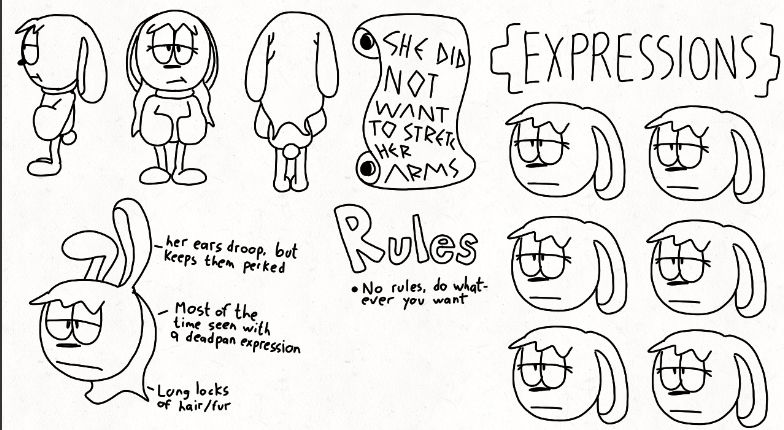 SHE DID
NOT
WANT
TO STRETCH
HER
ARMS
{EXPRESSIONS}
her ears droop, but
keeps them perked
Most of the
time seen with
a deadpan expression
Long locks
of hair/fur
Rules
• No rules, do what-
ever you want